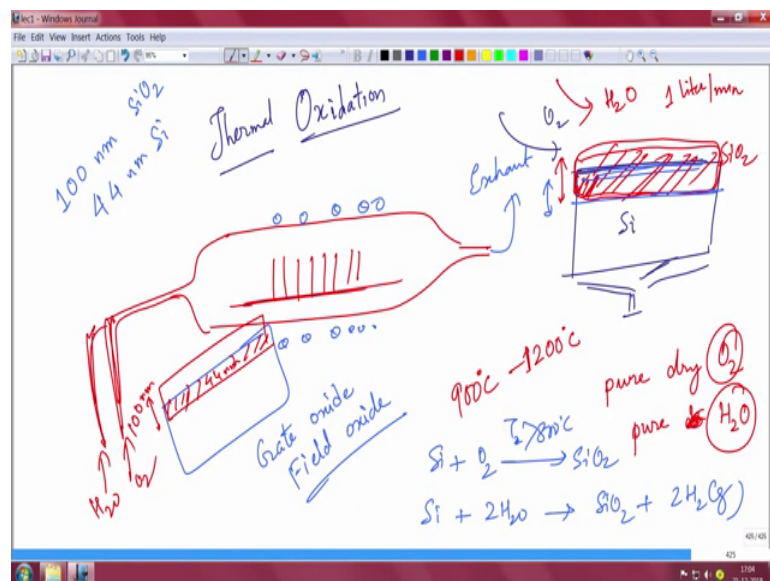 lec1 - Windows Journal
File Edit View Insert Actions Tools Help
100 nm SiO2
44 nm Si
Thermal Oxidation
O2
H2O 1 liter/min
Exhaust
SiO2
Si
44nm
100nm
H2O
O2
Gate oxide
Field oxide
900°C - 1200°C
pure dry O2
pure H2O
Si + O2 → SiO2
Si + 2H2O → SiO2 + 2H2(g)
426/426
425
17:04